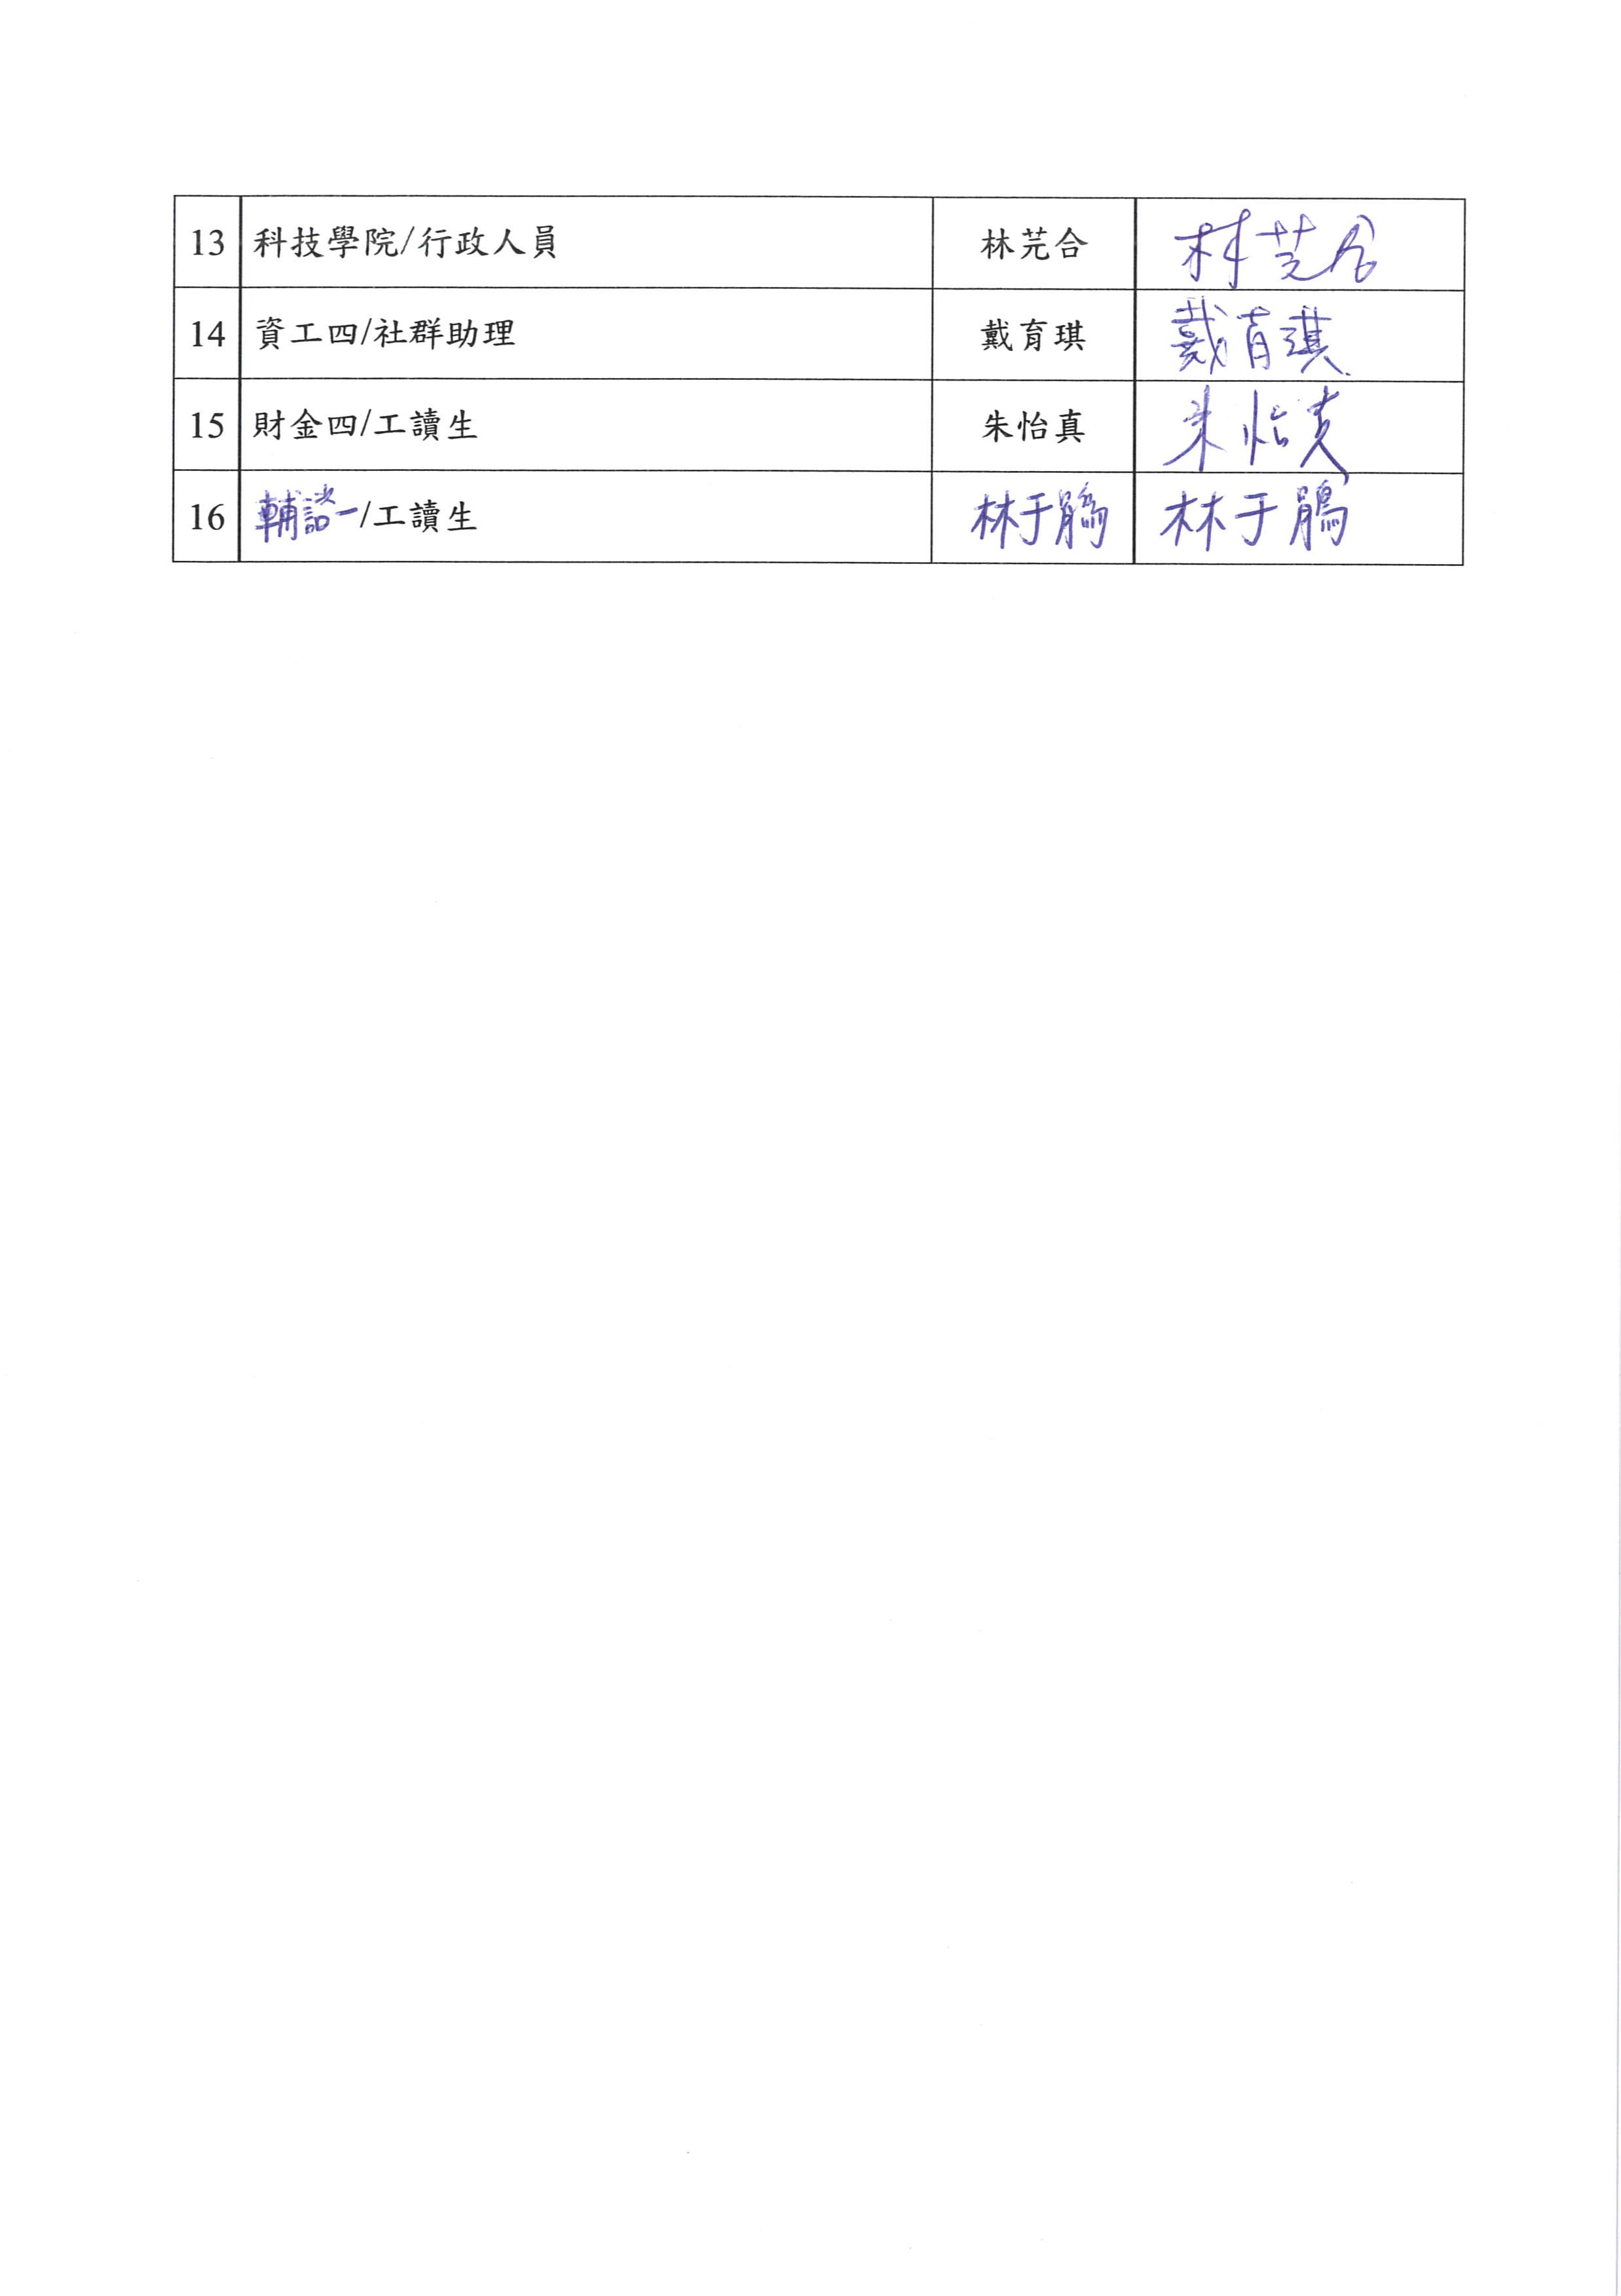 13 科技學院/行政人員 林芫合 林芫合
14 資工四/社群助理 戴育琪 戴育琪
15 財金四/工讀生 朱怡真 朱怡真
16 輔諮一/工讀生 林于鵑 林于鵑